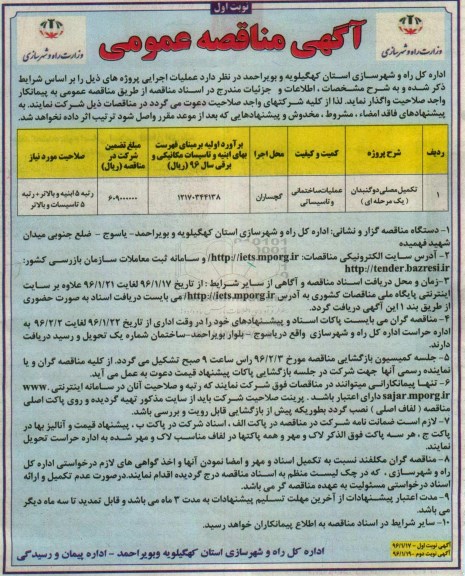 نوبت اول
آگهی مناقصه عمومی
وزارت راه و شهرسازی
وزارت راه و شهرسازی
اداره کل راه و شهرسازی استان کهگیلویه و بویراحمد در نظر دارد عملیات اجرایی پروژه های ذیل را بر اساس شرایط
ذکر شده و به شرح مشخصات ، اطلاعات و جزئیات مندرج در اسناد مناقصه از طریق مناقصه عمومی به پیمانکار
واجد صلاحیت واگذار نماید. لذا از کلیه شرکتهای واجد صلاحیت دعوت می گردد در مناقصات ذیل شرکت نمایند. به
پیشنهادهای فاقد امضاء ، مشروط ، مخدوش و پیشنهادهایی که بعد از موعد مقرر واصل شود ترتیب اثر داده نخواهد شد.
ردیف شرح پروژه کمیت و کیفیت محل اجرا برآورد اولیه بر مبنای فهرست بهای ابنیه و تاسیسات مکانیکی و برقی سال ۹۶ (ریال) مبلغ تضمین شرکت در مناقصه (ریال) صلاحیت مورد نیاز
۱ تکمیل مصلی دوگنبدان (یک مرحله ای) عملیات ساختمانی و تاسیساتی گچساران ۱۲۱۷۰۳۴۲۱۳۸ ۶۰۹۰۰۰۰۰۰ رتبه ۵ ابنیه و بالاتر + رتبه ۵ تاسیسات و بالاتر
۱- دستگاه مناقصه گزار و نشانی: اداره کل راه و شهرسازی استان کهگیلویه و بویراحمد- یاسوج - ضلع جنوبی میدان
شهید فهمیده
۲- آدرس سایت الکترونیکی مناقصات: http://iets.mporg.ir/ و سامانه ثبت معاملات سازمان بازرسی کشور:
http://tender.bazresi.ir
۳-زمان و محل دریافت اسناد مناقصه و آگاهی از سایر شرایط : از تاریخ ۹۶/۱/۱۷ لغایت ۹۶/۱/۲۱ علاوه بر سایت
اینترنتی پایگاه ملی مناقصات کشوری به آدرس http://iets.mporg.ir/ می بایست دریافت اسناد به صورت حضوری
از طریق بند ۱ این آگهی دریافت گردد.
۴- مناقصه گران می بایست پاکات اسناد و پیشنهادهای خود را در وقت اداری از تاریخ ۹۶/۱/۲۲ لغایت ۹۶/۲/۲ به
اداره حراست اداره کل راه و شهرسازی واقع در یاسوج - بلوار بویراحمد-ساختمان شماره یک تحویل و رسید دریافت
دارند.
۵- جلسه کمیسیون بازگشایی مناقصه مورخ ۹۶/۲/۳ راس ساعت ۹ صبح تشکیل می گردد. از کلیه مناقصه گران و یا
نماینده رسمی آنها جهت شرکت در جلسه بازگشایی پاکات پیشنهاد قیمت دعوت به عمل می آید.
۶- تنها پیمانکارانی میتوانند در مناقصات فوق شرکت نمایند که رتبه و صلاحیت آنان در سامانه اینترنتی .www
sajar.mporg.ir دارای اعتبار باشد . پرینت صلاحیت شرکت باید از سایت مذکور تهیه گردیده و روی پاکت اصلی
مناقصه ( لفاف اصلی ) نصب گردد بطوریکه پیش از بازگشایی قابل رویت و بررسی باشد.
۷- لازم است ضمانت نامه شرکت در مناقصه در پاکت الف ، اسناد شرکت در پاکت ب ، پیشنهاد قیمت و آنالیز بها در
پاکت ج ، هر سه پاکت فوق الذکر لاک و مهر و همه پاکتها در لفاف مناسب لاک و مهر شده به اداره حراست تحویل
نمایند.
۸- مناقصه گران مکلفند نسبت به تکمیل اسناد و مهر و امضا نمودن آنها و اخذ گواهی های لازم درخواستی اداره کل
راه و شهرسازی ، که در چک لیست منظم به اسناد مناقصه درج گردیده اقدام نمایند.درصورت عدم تکمیل و ارائه
اسناد درخواستی مسئولیت به عهده مناقصه گر می باشد.
۹- مدت اعتبار پیشنهادات از آخرین مهلت تسلیم پیشنهادات به مدت ۳ ماه می باشد و قابل تمدید تا سه ماه دیگر
می باشد.
۱۰- سایر شرایط در اسناد مناقصه به اطلاع پیمانکاران خواهد رسید.
آگهی نوبت اول - ۹۶/۱/۱۷
آگهی نوبت دوم - ۹۶/۱/۱۹
اداره کل راه و شهرسازی استان کهگیلویه وبویراحمد - اداره پیمان و رسیدگی